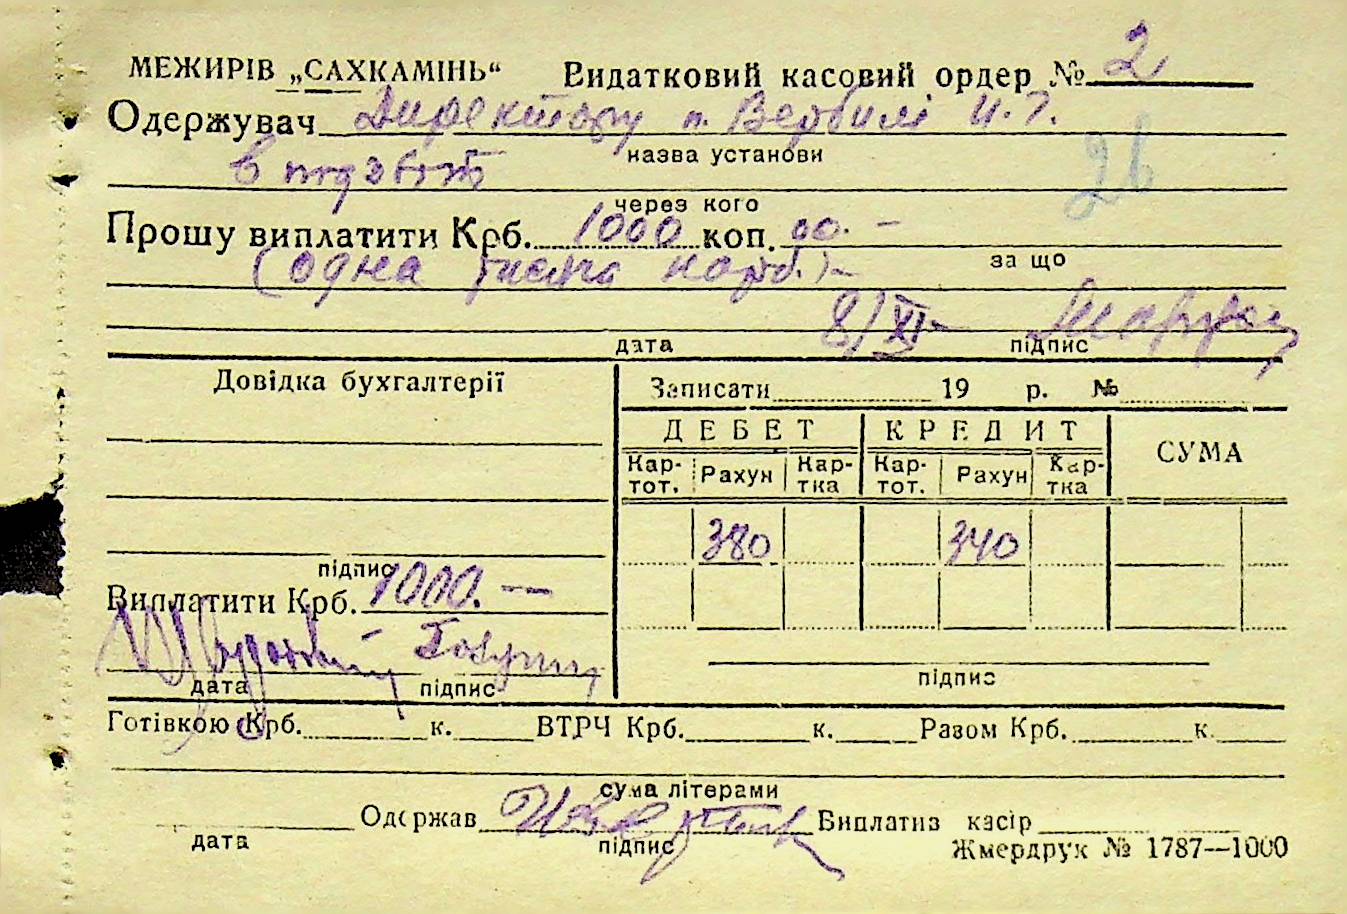 МЕЖИРІВ „САХКАМІНЬ“ Видатковий касовий ордер № 2
Одержувач Директору п. Вербилі И. Г.
назва установи
в підзвіт 26
через кого
Прошу виплатити Крб. 1000 коп. 00. –
за що
(одна тисяча карб.) –
8/XI –
дата підпис
Довідка бухгалтерії Записати 19 р. №
ДЕБЕТ КРЕДИТ СУМА
Кар-тот. Рахун Кар-тка Кар-тот. Рахун Кар-тка
380 340
підпис
Виплатити Крб. 1000. —
дата підпис підпис
Готівкою Крб. к. ВТРЧ Крб. к. Разом Крб. к.
сума літерами
Одержав Виплатив касір
дата підпис Жмердрук № 1787—1000